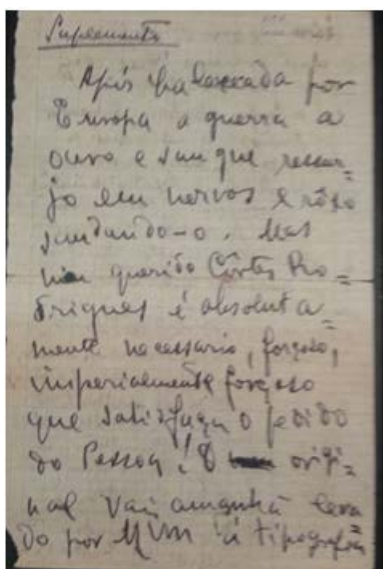 Suplemento
Após balaceada por
Europa a guerra a
ouro e sangue ressur=
jo em nervos e rôxo
saudando-o. Mas
meu querido Côrtes Ro=
driguez é absoluta=
mente necessario, forçoso,
imperialmente forçoso
que satisfaça o pedido
do Pessoa! O origi=
nal vai amanhã leva=
do por MVM á tipografia